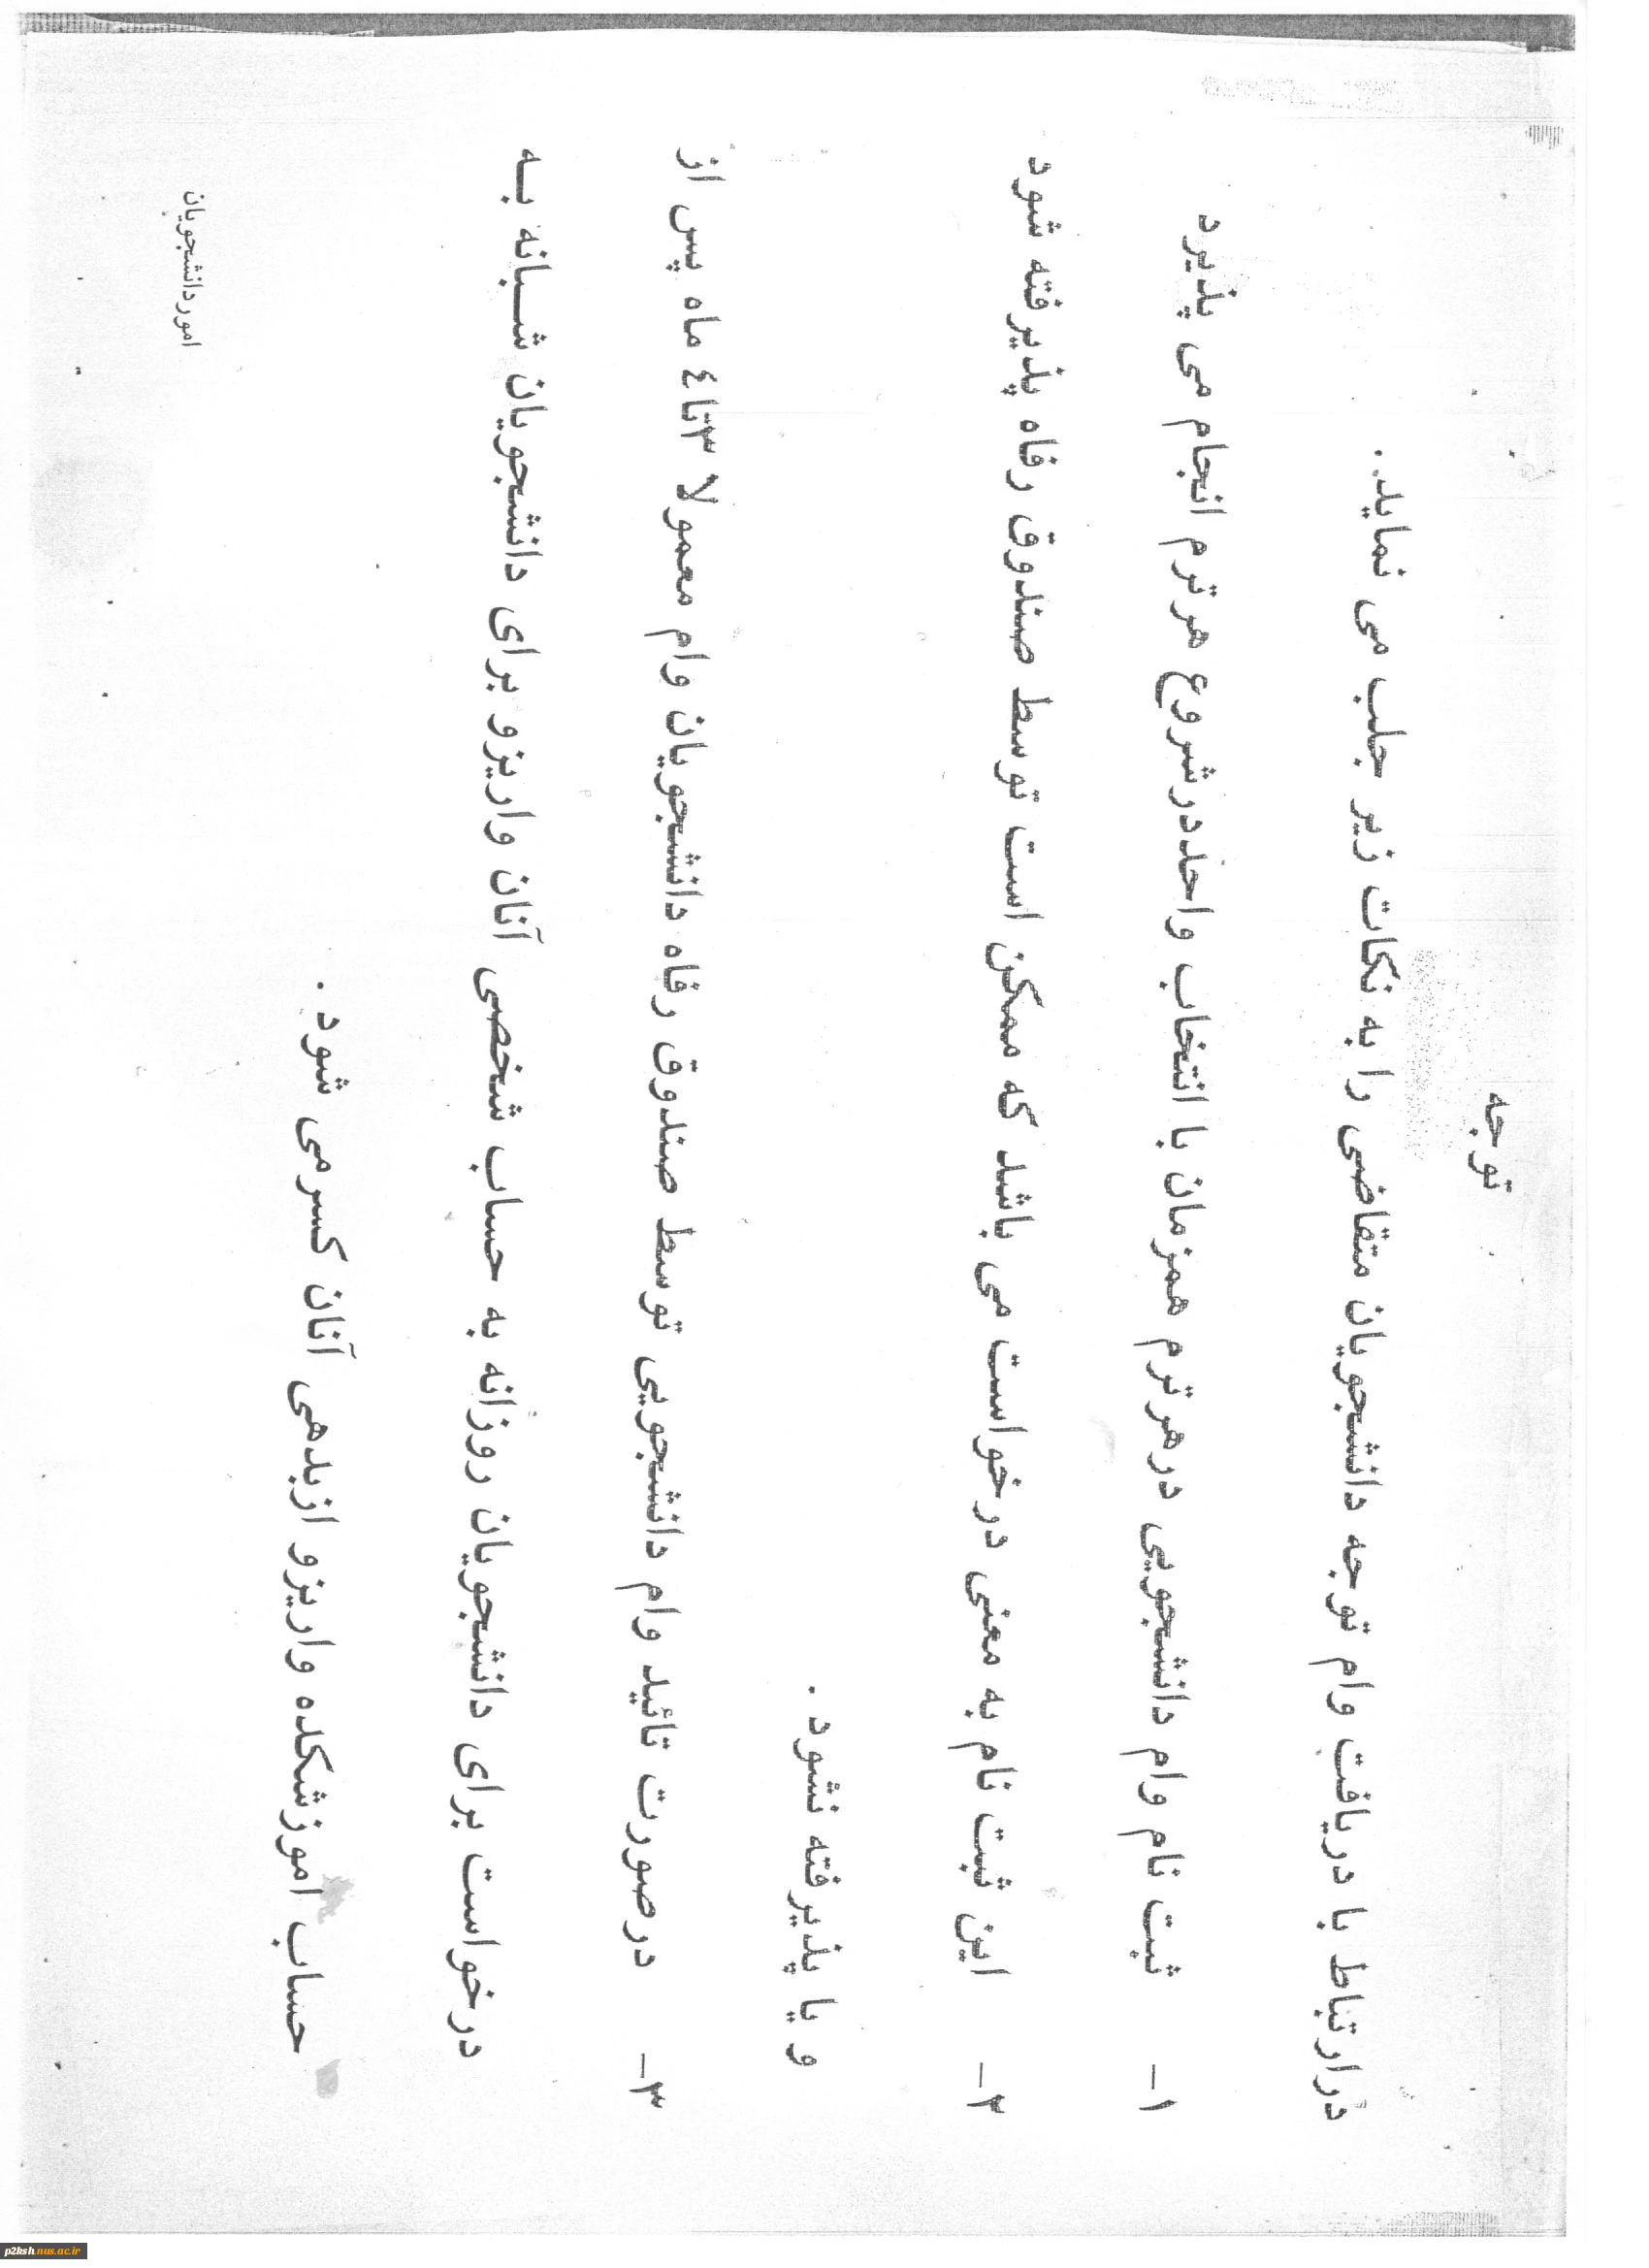 توجه
درارتباط با دریافت وام توجه دانشجویان متقاضی را به نکات زیر جلب می نماید.
۱- ثبت نام وام دانشجویی درهرترم همزمان با انتخاب واحددرشروع هرترم انجام می پذیرد
۲- این ثبت نام به معنی درخواست می باشد که ممکن است توسط صندوق رفاه پذیرفته شود
و یا پذیرفته نشود .
۳- درصورت تائید وام دانشجویی توسط صندوق رفاه دانشجویان وام معمولا ۳تا٤ ماه پس از
درخواست برای دانشجویان روزانه به حساب شخصی آنان واریزو برای دانشجویان شبانه به
حساب اموزشکده واریزو ازبدهی آنان کسرمی شود .
اموردانشجویان
p2ksh.nus.ac.ir